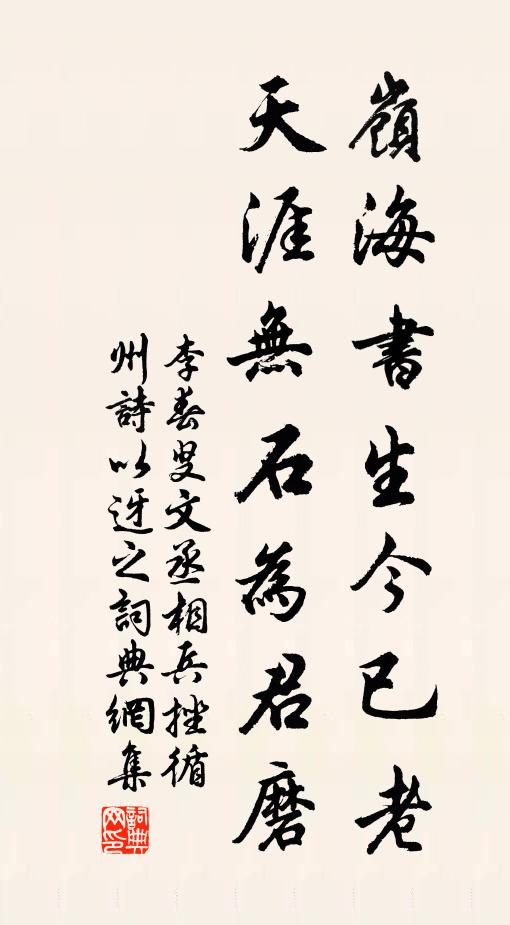 嶺海書生今已老
天涯無石為君磨
李春叟文丞相兵挫循
州詩以迓之詞典網集
詞典網印